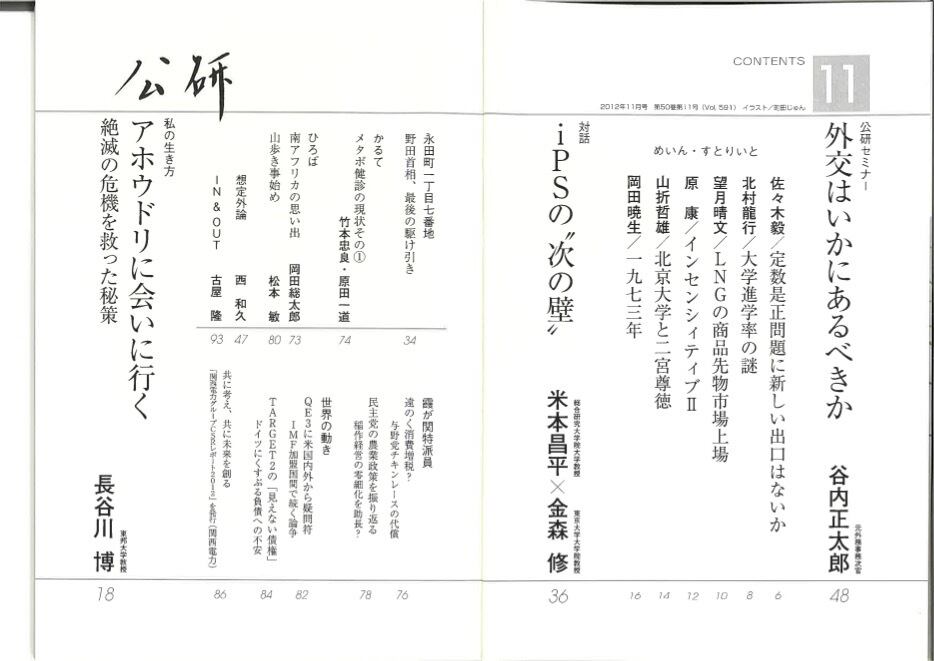 CONTENTS
11
2012年11月号 第50巻第11号（Vol. 591） イラスト／疋田じゅん
公研セミナー
外交はいかにあるべきか
元外務事務次官
谷内正太郎
48
めいん・すとりいと
佐々木毅／定数是正問題に新しい出口はないか
6
北村龍行／大学進学率の謎
8
望月晴文／LNGの商品先物市場上場
10
原 康／インセンシィティブⅡ
12
山折哲雄／北京大学と二宮尊徳
14
岡田暁生／一九七三年
16
対話
iPSの〝次の壁〟
総合研究大学院大学教授
米本昌平×
東京大学大学院教授
金森 修
36
公研
永田町一丁目七番地
野田首相、最後の駆け引き
34
かるて
メタボ健診の現状その①
竹本忠良・原田一道
74
ひろば
南アフリカの思い出 岡田総太郎
73
山歩き事始め 松本 敏
80
想定外論 西 和久
47
IN＆OUT 古屋 隆
93
霞が関特派員
遠のく消費増税？
与野党チキンレースの代償
76
民主党の農業政策を振り返る
稲作経営の零細化を助長？
78
世界の動き
QE3に米国内外から疑問符
IMF加盟国間で続く論争
82
TARGET2の「見えない債権」
ドイツにくすぶる負債への不安
84
共に考え、共に未来を創る
「関西電力グループCSRレポート2012」を発行（関西電力）
86
私の生き方
アホウドリに会いに行く
絶滅の危機を救った秘策
東邦大学教授
長谷川 博
18